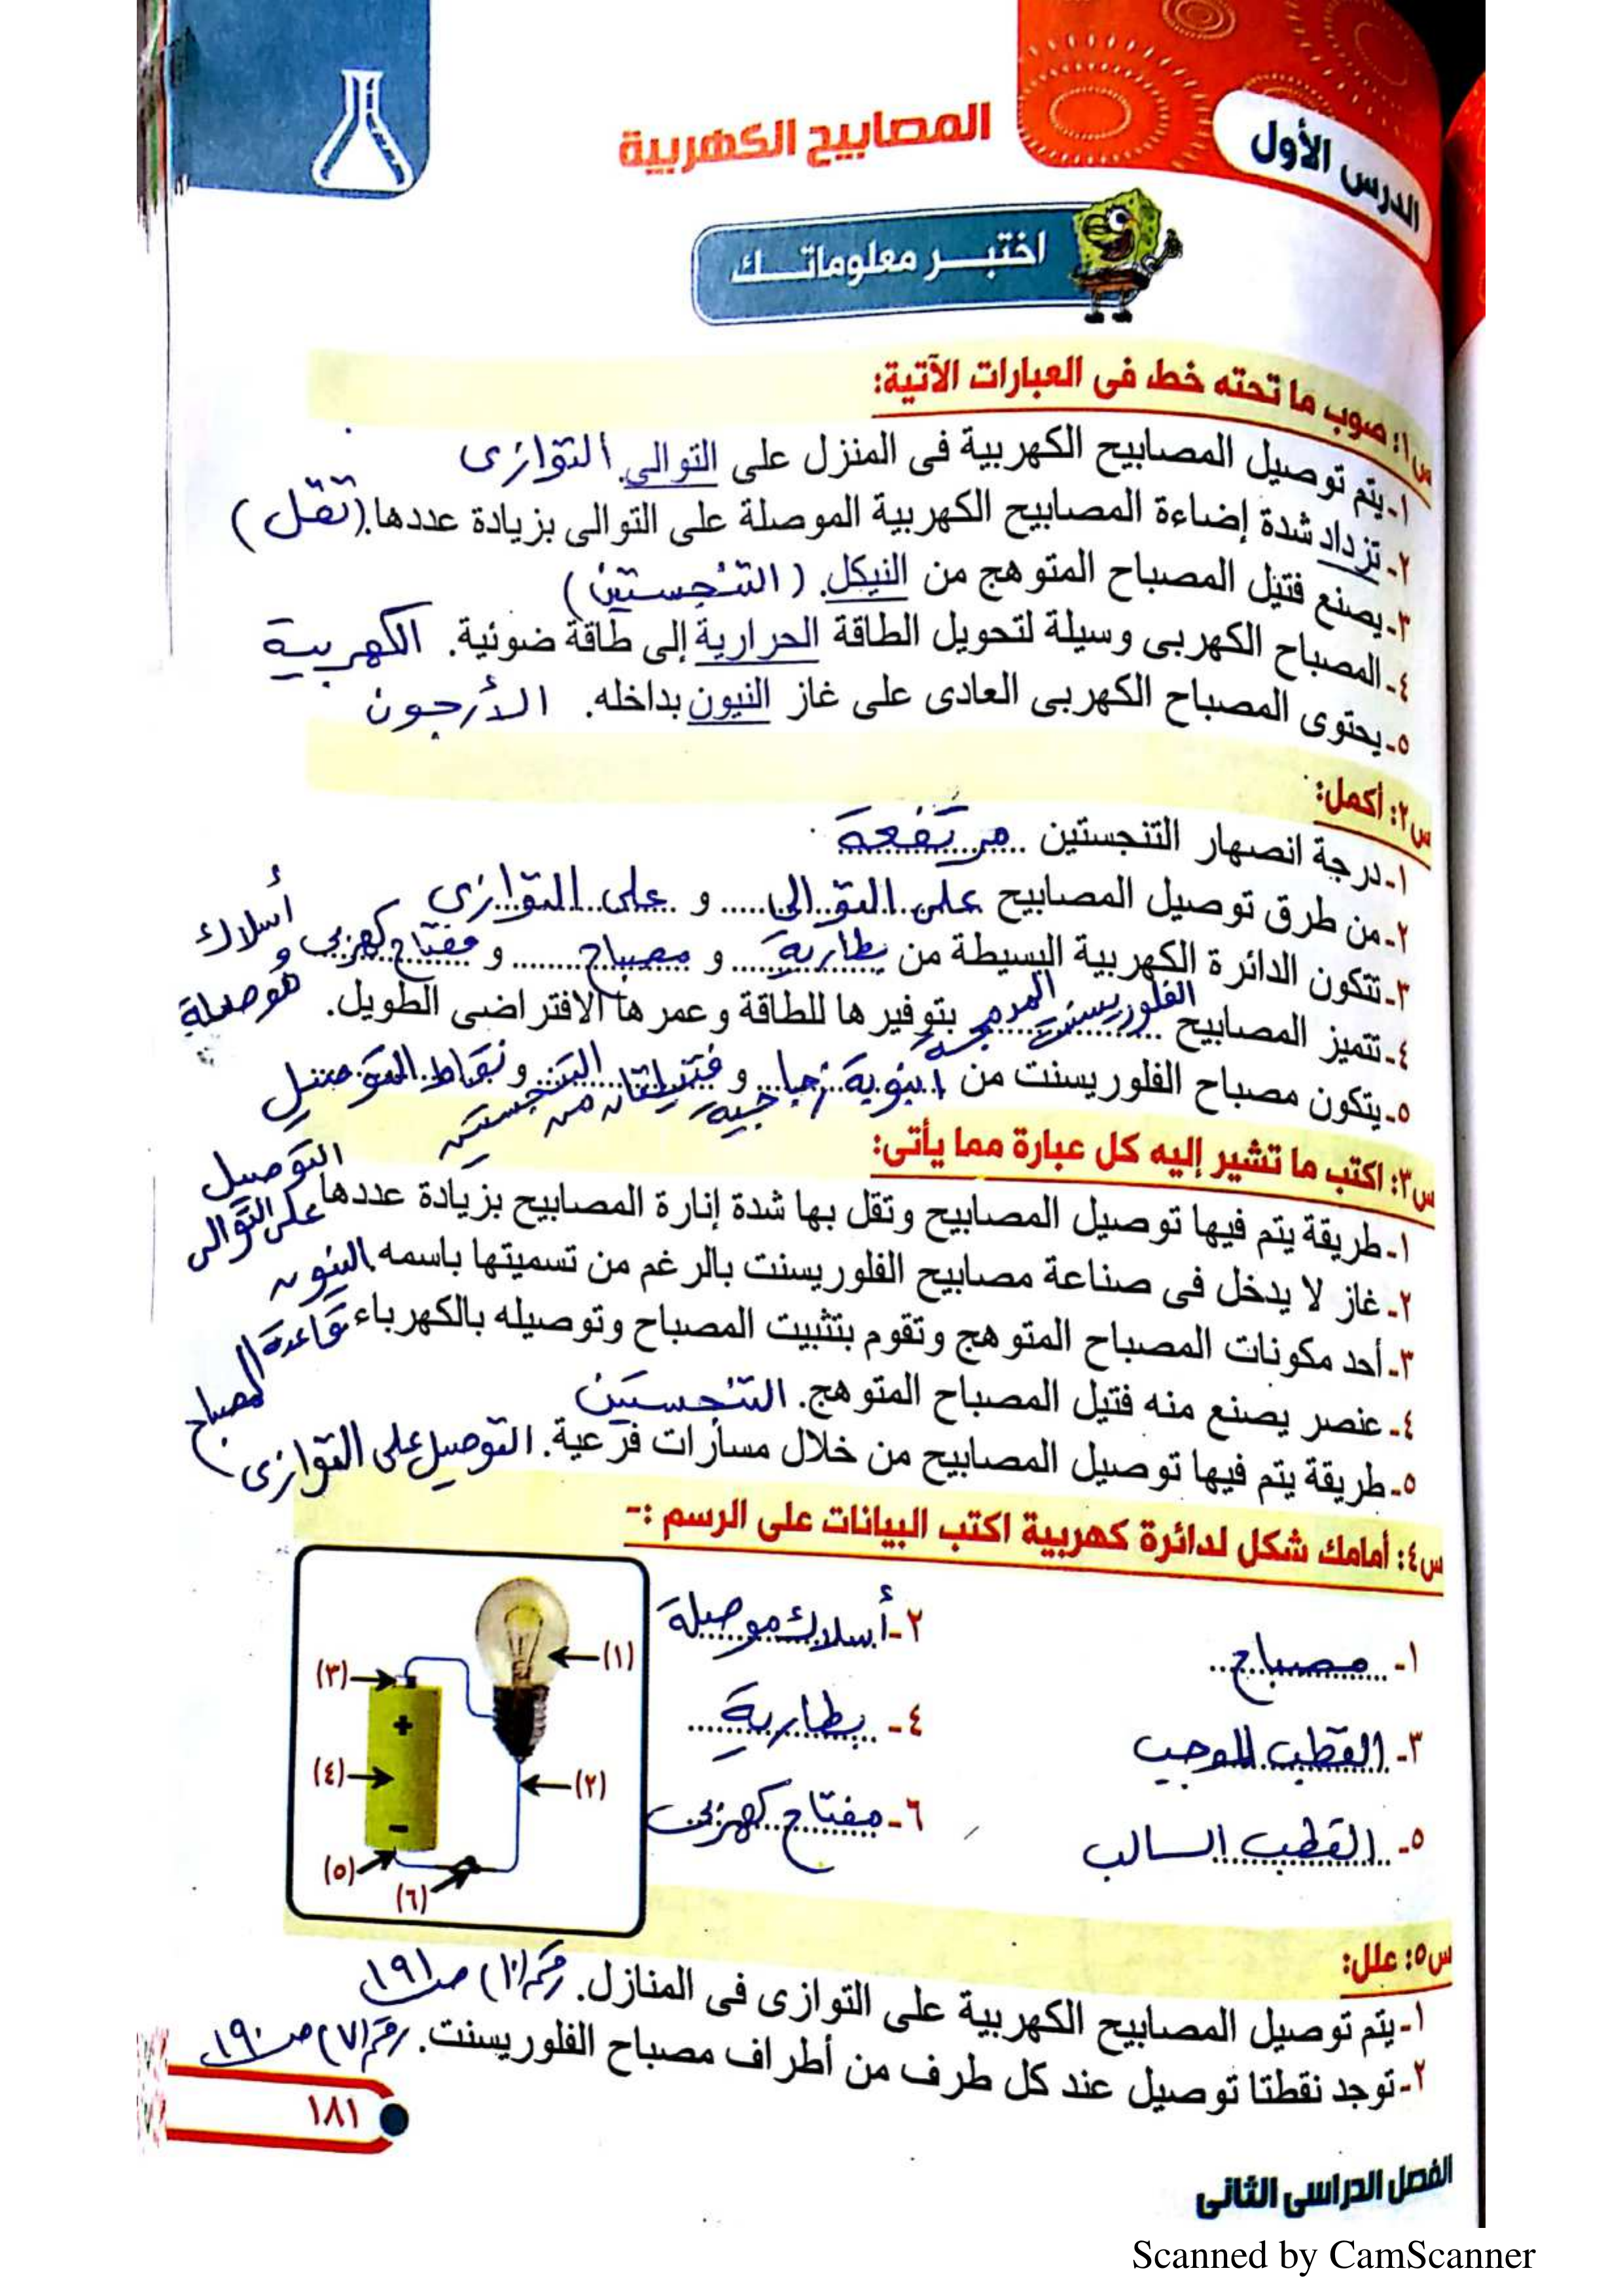 الدرس الأول
المصابيح الكهربية
اختبر معلوماتك
س١: صوب ما تحته خط فى العبارات الآتية:
١- يتم توصيل المصابيح الكهربية فى المنزل على التوالى. التوازى
٢- تزداد شدة إضاءة المصابيح الكهربية الموصلة على التوالى بزيادة عددها. (تقل)
٣- يصنع فتيل المصباح المتوهج من النيكل. (التنجستين)
٤- المصباح الكهربى وسيلة لتحويل الطاقة الحرارية إلى طاقة ضوئية. الكهربية
٥- يحتوى المصباح الكهربى العادى على غاز النيون بداخله. الأرجون
س٢: أكمل:
١- درجة انصهار التنجستين مرتفعة
٢- من طرق توصيل المصابيح على التوالى و على التوازى
٣- تتكون الدائرة الكهربية البسيطة من بطارية و مصباح و مفتاح كهربى و أسلاك موصلة
٤- تتميز المصابيح الفلوريسنت المدمجة بتوفيرها للطاقة وعمرها الافتراضى الطويل.
٥- يتكون مصباح الفلوريسنت من أنبوبة زجاجية و فتيلتان من التنجستين و نقاط التوصيل
س٣: اكتب ما تشير إليه كل عبارة مما يأتى:
١- طريقة يتم فيها توصيل المصابيح وتقل بها شدة إنارة المصابيح بزيادة عددها التوصيل على التوالى
٢- غاز لا يدخل فى صناعة مصابيح الفلوريسنت بالرغم من تسميتها باسمه النيون
٣- أحد مكونات المصباح المتوهج وتقوم بتثبيت المصباح وتوصيله بالكهرباء قاعدة المصباح
٤- عنصر يصنع منه فتيل المصباح المتوهج. التنجستين
٥- طريقة يتم فيها توصيل المصابيح من خلال مسارات فرعية. التوصيل على التوازى
س٤: أمامك شكل لدائرة كهربية اكتب البيانات على الرسم :-
١- مصباح
٢- أسلاك موصلة
٣- القطب الموجب
٤- بطارية
٥- القطب السالب
٦- مفتاح كهربى
(١)
(٣)
+
(٤)
(٢)
-
(٥)
(٦)
س٥: علل:
١- يتم توصيل المصابيح الكهربية على التوازى فى المنازل. رقم (١٠) صـ ١٩١
٢- توجد نقطتا توصيل عند كل طرف من أطراف مصباح الفلوريسنت. رقم (٧) صـ ١٩٠
١٨١
الفصل الدراسى الثانى
Scanned by CamScanner